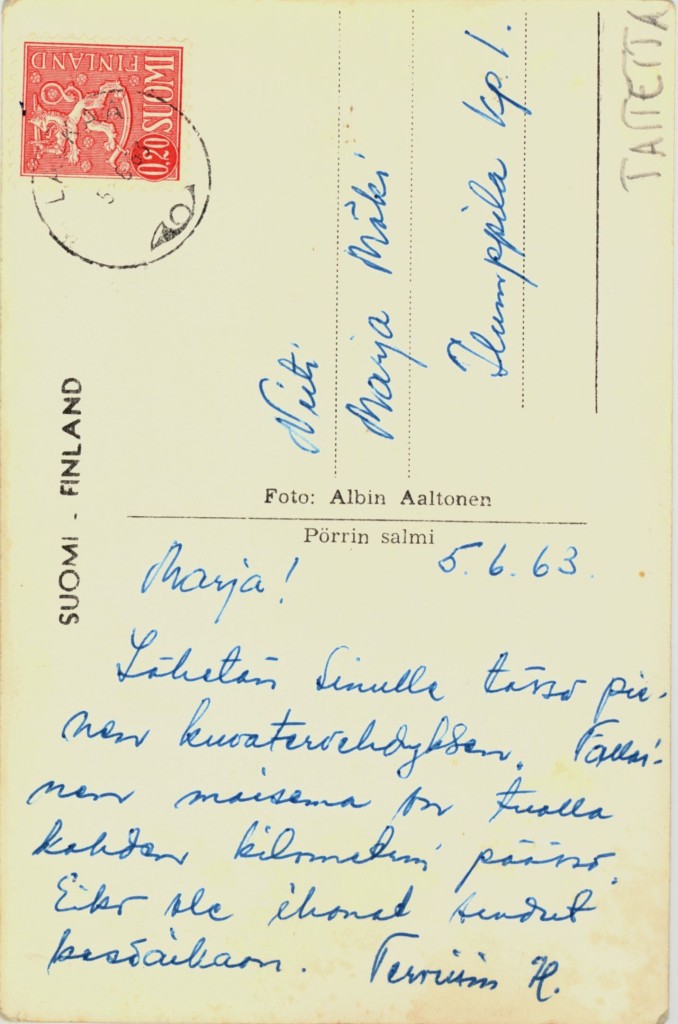 SUOMI
FINLAND
0.20
SUOMI - FINLAND
TAITETTA
Neiti
Marja Mäki
Humppila kp. 1.
Foto: Albin Aaltonen
Pörrin salmi
Marja! 5.6.63.
Lähetän Sinulle tässä pie-
nen kuvatervehdyksen. Tällai-
nen maisema on tuolla
kahden kilometrin päässä.
Eikö ole ihanat seudut
kesäaikaan. Terveisin H.